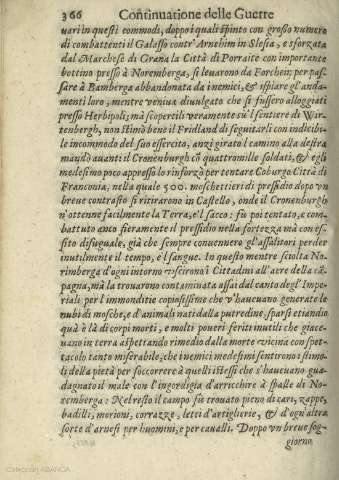 366 Continuatione delle Guerre
uari in questi commodi, doppo i quali spinto con grosso numero
di combattenti il Galasso contr'Arnehim in Slesia, e sforzata
dal Marchese di Grana la Città di Porraite con importante
bottino presso à Noremberga, si leuarono da Forchein per pas-
sare à Bamberga abbandonata da inemici, & ispiare gl'anda-
menti loro, mentre veniua diuulgato che si fussero alloggiati
presso Herbipoli; mà scopertili veramente sù'l sentiere di Wir-
tenbergh, non stimò bene il Fridland di seguitarli con indicibi-
le incommodo del suo essercito, anzi girato l camino alla destra
mandò auanti il Cronenburgh cō quattromille soldati, & egli
medesimo poco appresso lo rinforzò per tentare Coburgo Città di
Franconia, nella quale 500. moschettieri di pressidio dopo vn
breue contrasto si ritirarono in Castello, onde il Cronenburgh
n'ottenne facilmente la Terra, e'l sacco: fù poi tentato, e com-
battuto ano fieramente il pressidio nella fortezza mà con es-
sito disuguale, già che sempre conuennero gl'assalitori perder
inutilmente il tempo, e'l sangue. In questo mentre sciolta No-
rimberga d'ogni intorno vscirono i Cittadini all'aere della cā-
pagna, mà la trouarono contaminata assai dal canto degl'Impe-
riali per l'immonditie copiosissime che v'haueuano generate le
nubi di mosche, e d'animali nati dalla putredine, sparsi etiandio
quà è là di corpi morti, e molti poueri feriti inutili che giace-
uano in terra aspettando rimedio dalla morte vicina con spet-
tacolo tanto miserabile, che i nemici medesimi sentirono i stimo-
li della pietà per soccorrere à quelli istessi che s'haueuano gua-
dagnato il male con l'ingordigia d'arricchire à spalle di No-
remberga: Nel resto il campo fù trouato pieno di cari, zappe,
badilli, morioni, corrazze, letti d'artiglierie, & d'ogn'altra
sorte d'arnesi per huomini, e per caualli. Doppo vn breue sog-
giorno
Colección ABANCA